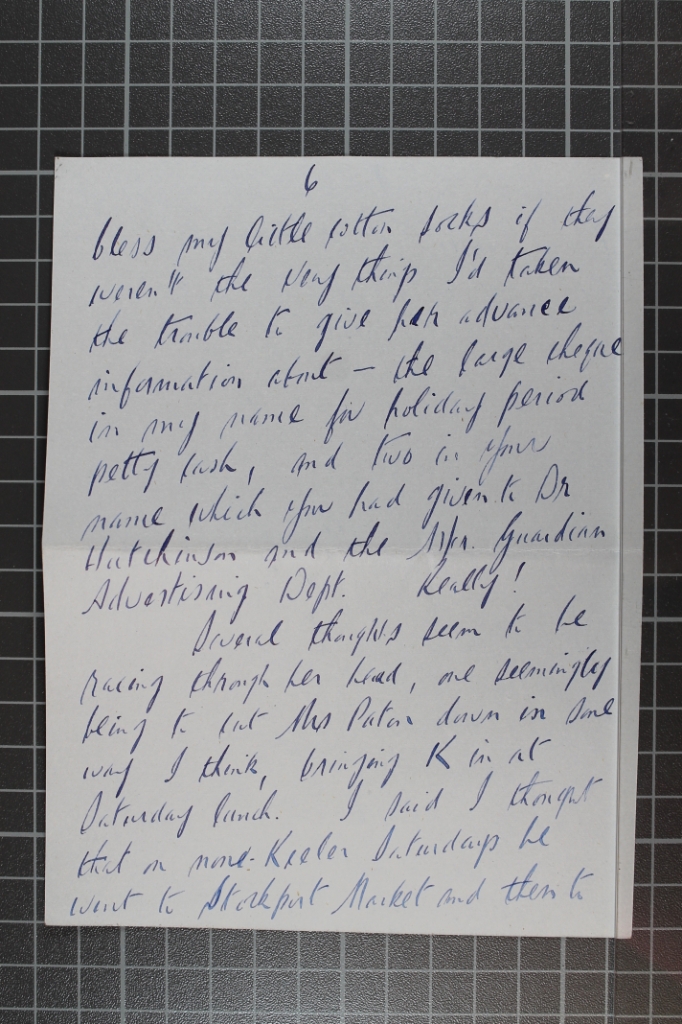 6
bless my little cotton socks if they
weren't the very things I'd taken
the trouble to give her advance
information about — the large cheque
in my name for holiday period
petty cash, and two in your
name which you had given to Dr
Hutchinson and the Mr. Guardian
Advertising Dept. Really!
Several thoughts seem to be
racing through her head, one seemingly
being to cut Mrs Paton down in some
way I think, bringing K in at
Saturday lunch. I said I thought
that on none-Keeler Saturdays he
went to Stockport Market and then to